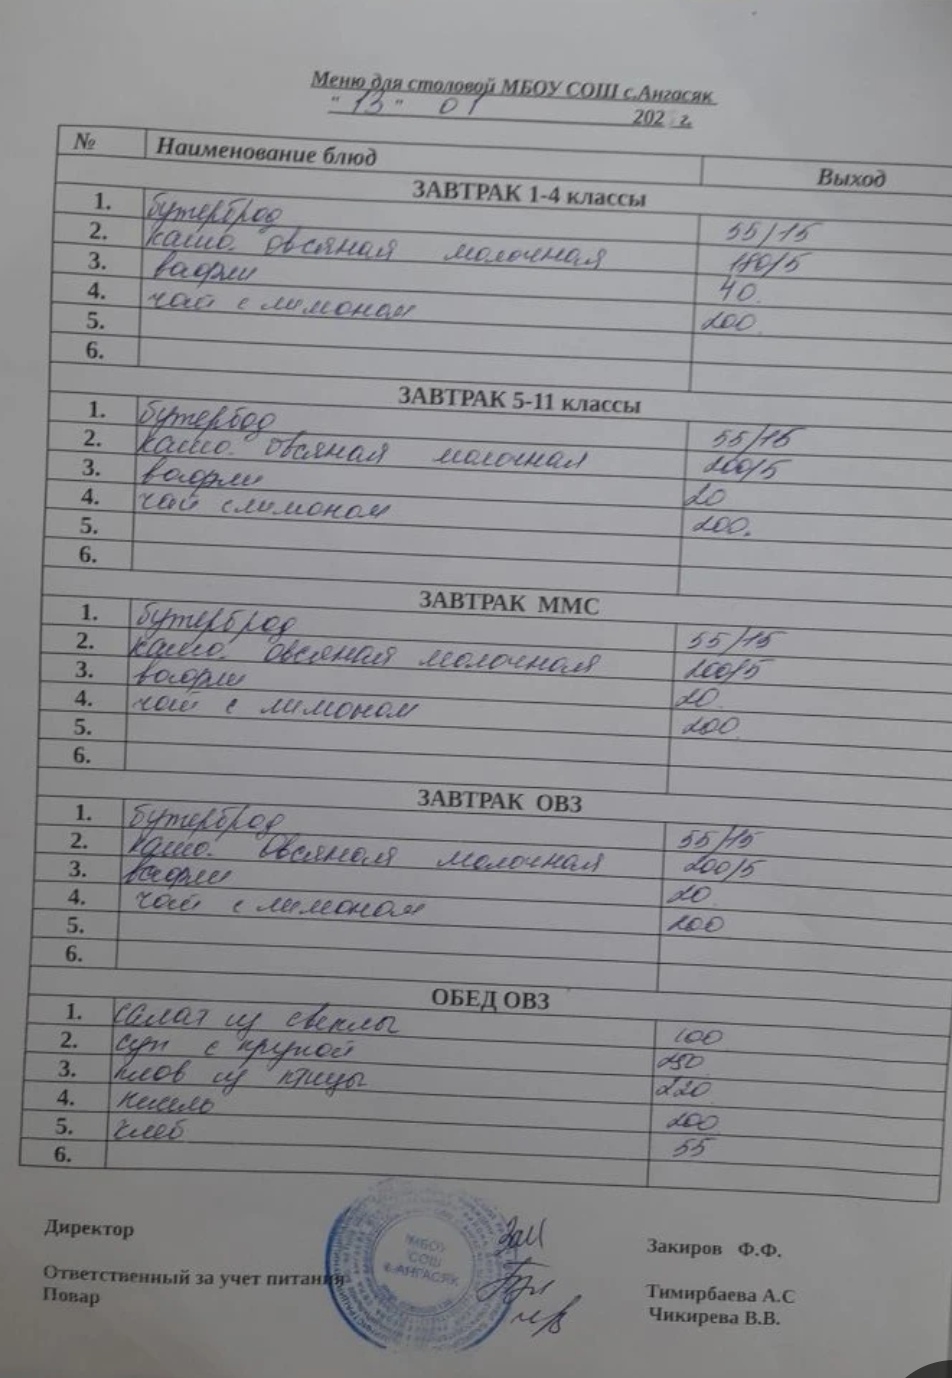 Меню для столовой МБОУ СОШ с.Ангасяк
"13" 01 202 г.
№ Наименование блюд Выход
ЗАВТРАК 1-4 классы
1. бутерброд 55/15
2. каша овсяная молочная 180/5
3. вафли 40.
4. чай с лимоном 200.
5.
6.
ЗАВТРАК 5-11 классы
1. бутербод 55/15
2. каша овсяная молочная 200/5
3. вафли 20
4. чай с лимоном 200.
5.
6.
ЗАВТРАК ММС
1. бутерброд 55/15
2. каша овсяная молочная 200/5
3. вафли 20.
4. чай с лимоном 200.
5.
6.
ЗАВТРАК ОВЗ
1. бутерброд 55/15
2. каша овсяная молочная 200/5
3. вафли 20
4. чай с лимоном 200
5.
6.
ОБЕД ОВЗ
1. салат из свеклы 100
2. суп с крупой 250
3. плов из птицы 220
4. кисель 200
5. хлеб 55
6.
Директор Закиров Ф.Ф.
МБОУ
СОШ
с.АНГАСЯК
Ответственный за учет питания Тимирбаева А.С
Повар Чикирева В.В.